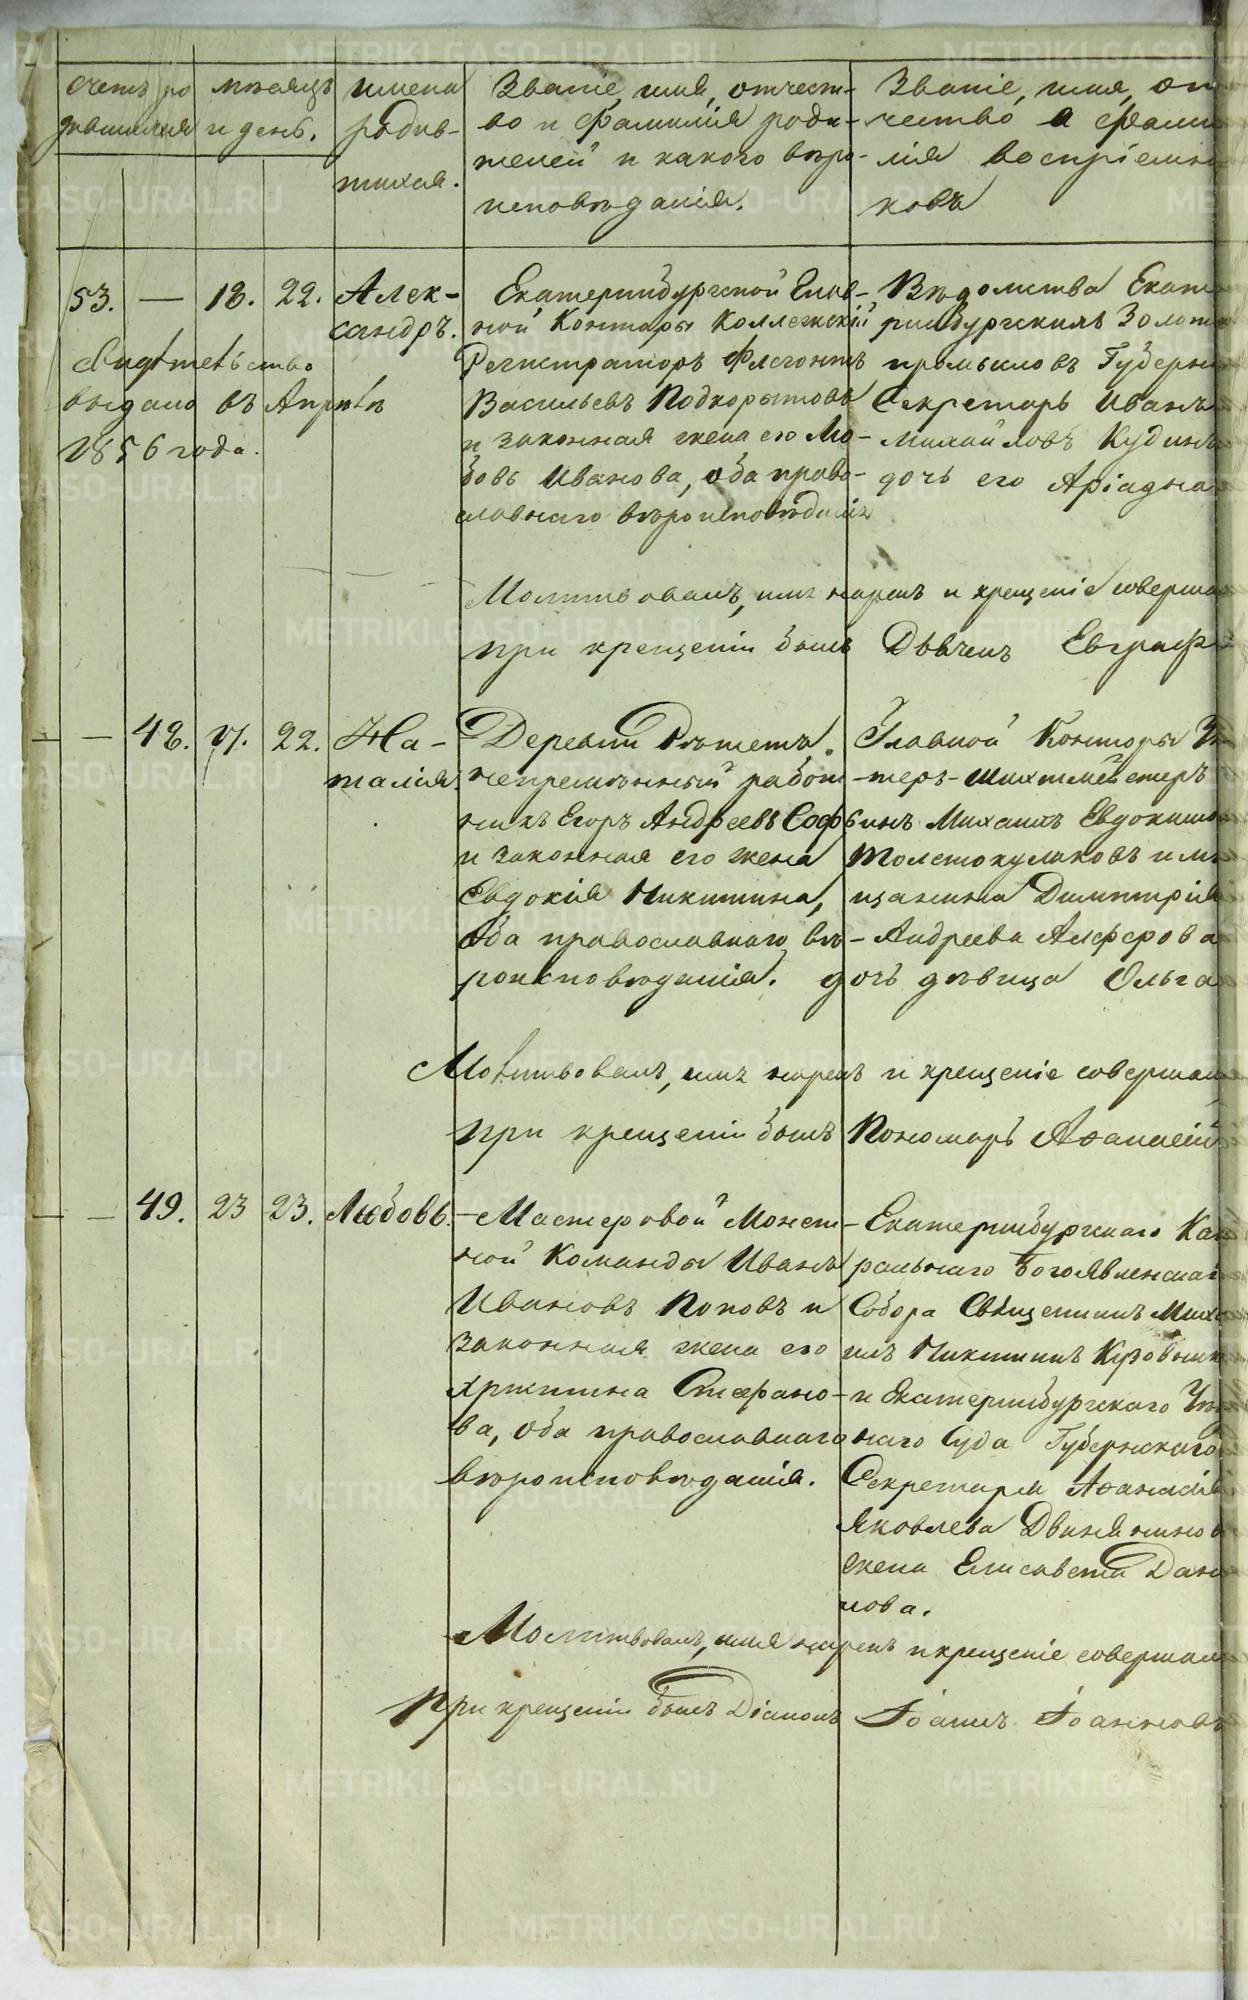 Счетъ ро
дившихся
мѣсяцъ
и день.
имена
родив-
шихся.
Званіе, имя, отчест-
во и фамилія роди-
телей и какого вѣро-
исповѣданія.
Званіе, имя, от
чество и фами
лія воспріемни
ковъ
53. — 18. 22.
Алек-
сандръ.
Свидѣтельство
выдано въ Апрѣлѣ
1856 года.
Екатеринбургской Глав-
ной Конторы Коллежскій
Регистраторъ Флегонтъ
Васильевъ Подкорытовъ
и законная жена его Лю-
бовь Иванова, оба право-
славнаго вѣроисповѣданія
Вѣдомства Екате
ринбургскихъ Золото
промысловъ Губернс
Секретарь Иванъ
Михайловъ Кудинъ
дочь его Аріадна
Молитвовалъ, имя нарекъ и крещеніе соверша
при крещеніи былъ Дьячекъ Евграфъ
— 48. 17. 22.
На-
талія.
Деревни Рѣшетъ
непремѣнный работ-
никъ Егоръ Андреевъ Соф
и законная его жена
Евдокія Никитина,
оба православнаго вѣ-
роисповѣданія.
Главной Конторы Ун
теръ-шихтмейстеръ
ьинъ Михаилъ Евдокимо
Толстокулаковъ и мѣ
щанина Димитрія
Андреева Алферова
дочь дѣвица Ольга
Молитвовалъ, имя нарекъ и крещеніе совершал
при крещеніи былъ Пономарь Аѳанасій
— 49. 23 23.
Любовь.
Мастеровой Монет-
ной Команды Иванъ
Ивановъ Поповъ и
законная жена его
Христина Стефано-
ва, оба православнаго
вѣроисповѣданія.
Екатеринбургскаго Каѳ
ральнаго Богоявленскаг
Собора Священникъ Миха
илъ Никитинъ
и Екатеринбургскаго Уѣзд
наго Суда Губернскаго
Секретаря Аѳанасія
Яковлева Двинянинов
жена Елисавета Дани
лова.
Молитвовалъ, имя нарекъ и крещеніе совершал
при крещеніи былъ Діаконъ Іоаннъ Іоанновъ
METRIKI.GASO-URAL.RU